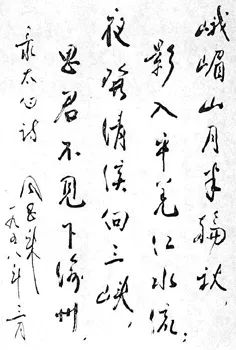 峨嵋山月半輪秋,
影入平羌江水流;
夜發清溪向三峽,
思君不見下渝州.
录太白诗 周恩来
一九五八年三月